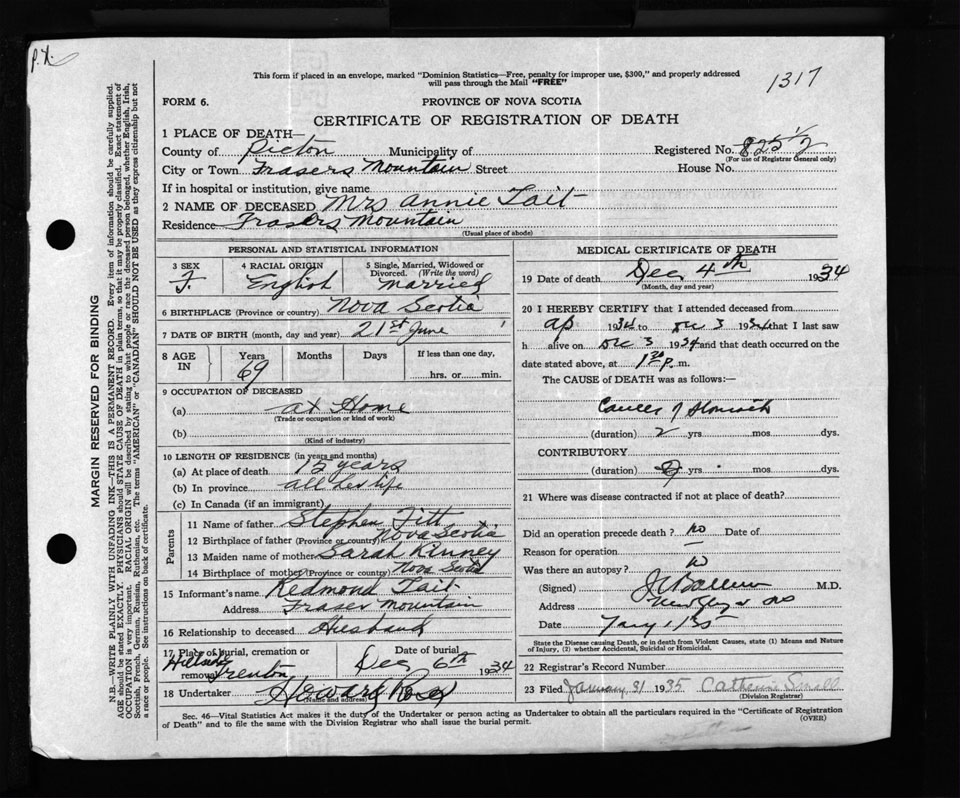 P.X.
1317
This form if placed in an envelope, marked "Dominion Statistics—Free, penalty for improper use, $300," and properly addressed
will pass through the Mail "FREE"
FORM 6.
PROVINCE OF NOVA SCOTIA
CERTIFICATE OF REGISTRATION OF DEATH
1 PLACE OF DEATH—
County of Pictou Municipality of Registered No. 825 1/2
(For use of Registrar General only)
City or Town Frasers Mountain Street House No.
If in hospital or institution, give name
2 NAME OF DECEASED Mrs Annie Tait
Residence Frasers Mountain
(Usual place of abode)
PERSONAL AND STATISTICAL INFORMATION
3 SEX F.
4 RACIAL ORIGIN English
5 Single, Married, Widowed or
Divorced. (Write the word)
Married
6 BIRTHPLACE (Province or country) Nova Scotia
7 DATE OF BIRTH (month, day and year) 21st June
8 AGE IN Years 69 Months Days If less than one day,
hrs. or min.
9 OCCUPATION OF DECEASED
(a) at Home
(Trade or occupation or kind of work)
(b)
(Kind of industry)
10 LENGTH OF RESIDENCE (in years and months)
(a) At place of death 15 years
(b) In province all her life
(c) In Canada (if an immigrant)
Parents
11 Name of father Stephen Titt
12 Birthplace of father (Province or country) Nova Scotia
13 Maiden name of mother Sarah Kinney
14 Birthplace of mother (Province or country) Nova Scotia
15 Informant's name Redmond Tait
Address Fraser Mountain
16 Relationship to deceased Husband
17 Place of burial, cremation or removal Trenton
Date of burial Dec 6th 1934
18 Undertaker Howard Ross
(Name and address)
MEDICAL CERTIFICATE OF DEATH
19 Date of death Dec 4th 1934
(Month, day and year)
20 I HEREBY CERTIFY that I attended deceased from
ap 1934 to Dec 3 1934 that I last saw
h alive on Dec 3 1934 and that death occurred on the
date stated above, at 1 30 p. m.
The CAUSE of DEATH was as follows:—
Cancer of Stomach
(duration) 2 yrs. mos. dys.
CONTRIBUTORY
(duration) yrs. mos. dys.
21 Where was disease contracted if not at place of death?
Did an operation precede death? no Date of
Reason for operation —
Was there an autopsy? no
(Signed) M.D.
Address New Glasgow NS
Date Jany 1/35
State the Disease causing Death, or in death from Violent Causes, state (1) Means and Nature
of Injury, (2) whether Accidental, Suicidal or Homicidal.
22 Registrar's Record Number
23 Filed January 31 1935 Catherine Small
(Division Registrar)
Sec. 46—Vital Statistics Act makes it the duty of the Undertaker or person acting as Undertaker to obtain all the particulars required in the "Certificate of Registration
of Death" and to file the same with the Division Registrar who shall issue the burial permit.
(OVER)
MARGIN RESERVED FOR BINDING
N.B.—WRITE PLAINLY WITH UNFADING INK—THIS IS A PERMANENT RECORD. Every item of information should be carefully supplied.
AGE should be stated EXACTLY. PHYSICIANS should STATE CAUSE OF DEATH in plain terms, so that it may be properly classified. Exact statement of
OCCUPATION is very important. RACIAL ORIGIN will be described by stating to what people or race the deceased person belonged, whether English, Irish,
Scottish, French, German, Russian, Ruthenian, etc. The terms "AMERICAN" or "CANADIAN" SHOULD NOT BE USED as they express citizenship but not
a race or people. See instructions on back of certificate.